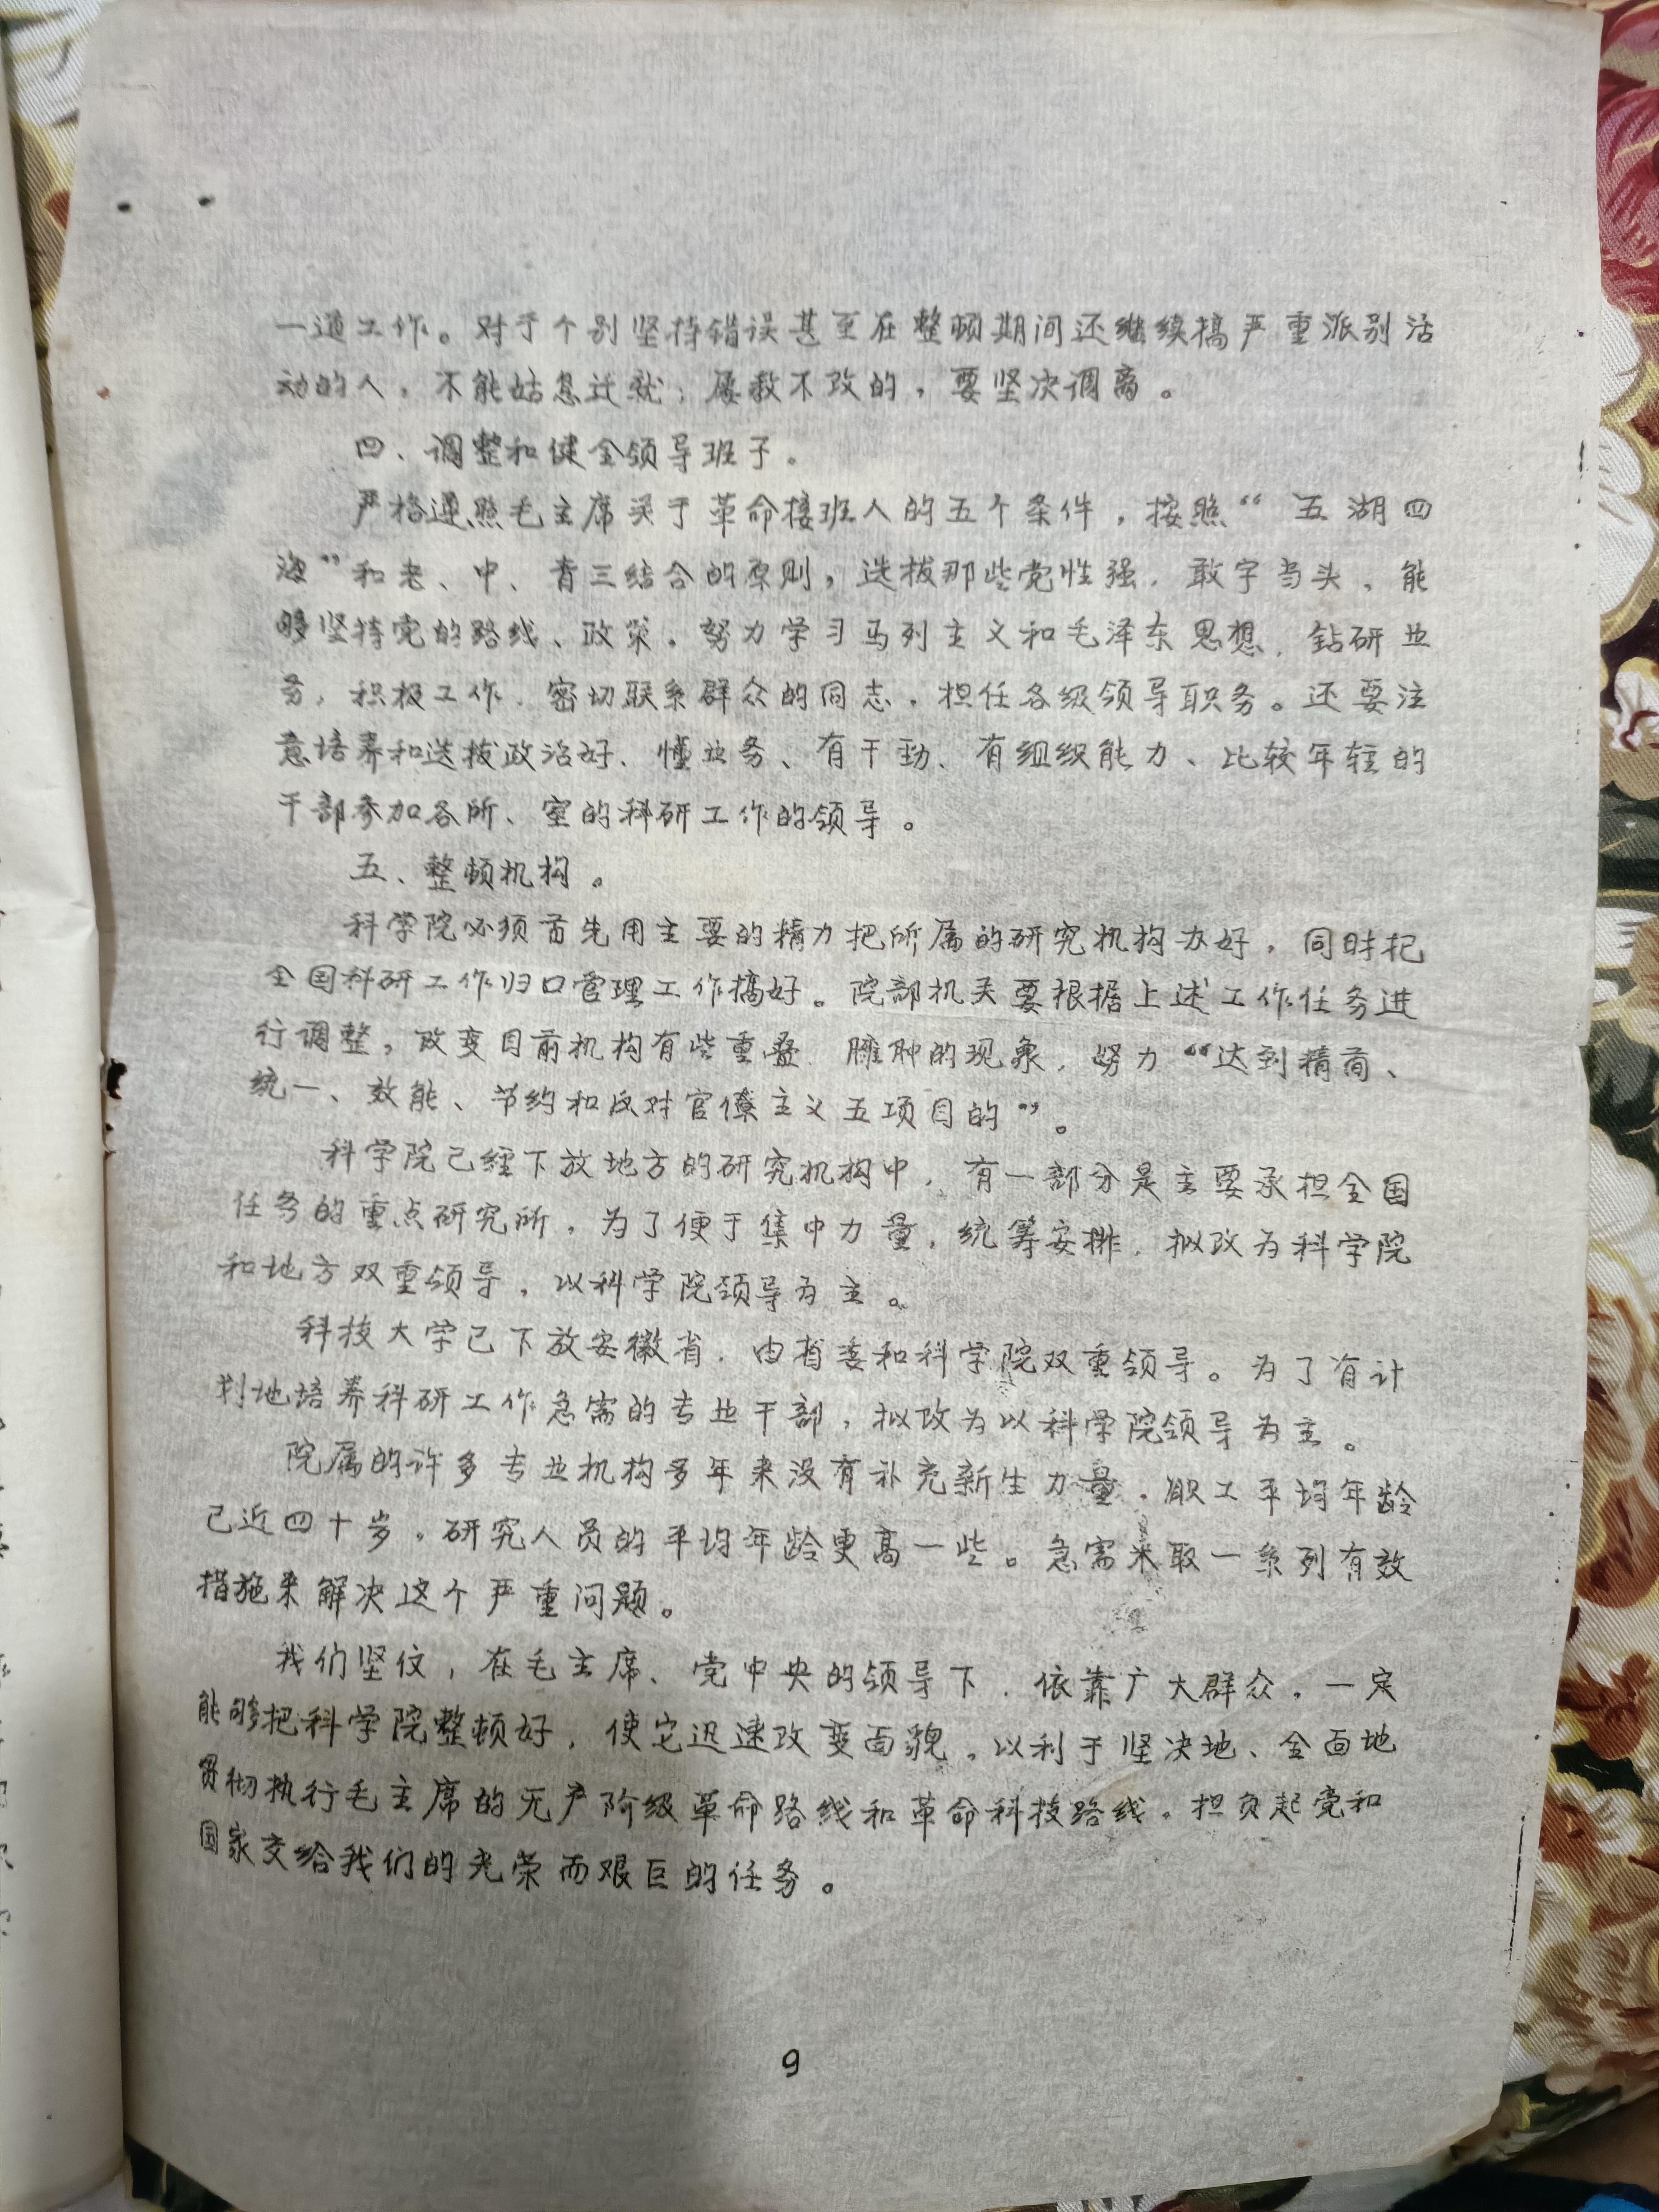 一道工作。对于个别坚持错误甚至在整顿期间还继续搞严重派别活
动的人，不能姑息迁就；屡教不改的，要坚决调离。
四、调整和健全领导班子。
严格遵照毛主席关于革命接班人的五个条件，按照“五湖四
海”和老、中、青三结合的原则，选拔那些党性强、敢字当头、能
够坚持党的路线、政策，努力学习马列主义和毛泽东思想，钻研业
务，积极工作，密切联系群众的同志，担任各级领导职务。还要注
意培养和选拔政治好、懂业务、有干劲、有组织能力、比较年轻的
干部参加各所、室的科研工作的领导。
五、整顿机构。
科学院必须首先用主要的精力把所属的研究机构办好，同时把
全国科研工作归口管理工作搞好。院部机关要根据上述工作任务进
行调整，改变目前机构有些重叠、臃肿的现象，努力“达到精简、
统一、效能、节约和反对官僚主义五项目的”。
科学院已经下放地方的研究机构中，有一部分是主要承担全国
任务的重点研究所，为了便于集中力量，统筹安排，拟改为科学院
和地方双重领导，以科学院领导为主。
科技大学已下放安徽省，由省委和科学院双重领导。为了有计
划地培养科研工作急需的专业干部，拟改为以科学院领导为主。
院属的许多专业机构多年来没有补充新生力量，职工平均年龄
已近四十岁，研究人员的平均年龄更高一些。急需采取一系列有效
措施来解决这个严重问题。
我们坚信，在毛主席、党中央的领导下，依靠广大群众，一定
能够把科学院整顿好，使它迅速改变面貌，以利于坚决地、全面地
贯彻执行毛主席的无产阶级革命路线和革命科技路线，担负起党和
国家交给我们的光荣而艰巨的任务。
9